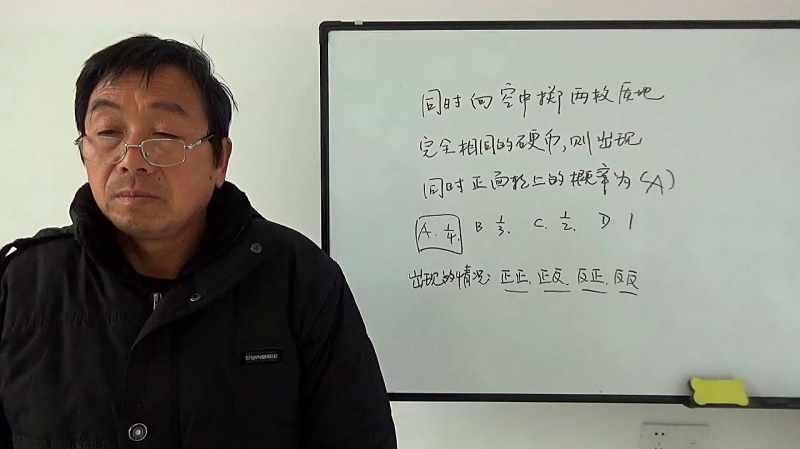 同时向空中掷两枚质地
完全相同的硬币,则出现
同时正面朝上的概率为(A)
A. 1/4. B 1/3. C. 1/2. D 1
出现的情况: 正正. 正反. 反正. 反反